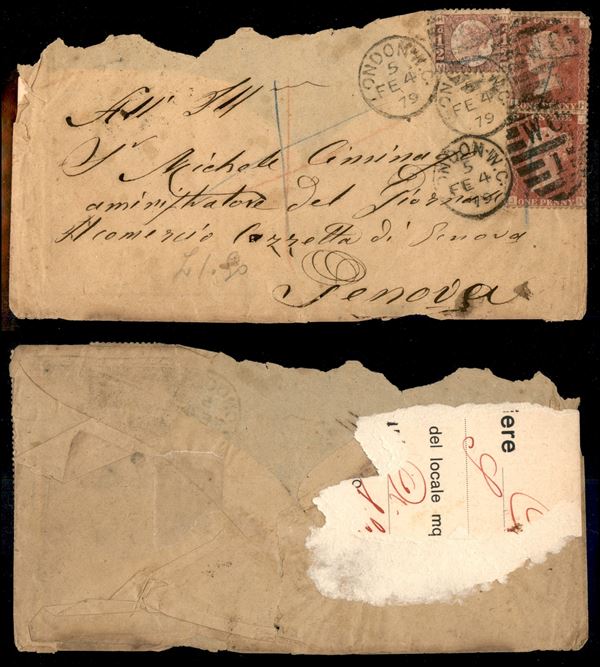 LONDON·W.C.
5
FE 4
79
LONDON·W.C.
5
FE 4
79
LONDON·W.C.
5
FE 4
79
W.C
1
ONE PENNY
ONE PENNY
All' Ill
Sr Michele Cimina
aministratore del Giornale
Il comercio Gazzetta di Genova
Genova
iere
del locale mq